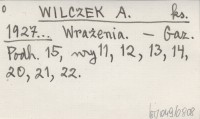 WILCZEK A. ks.
1927... Wrażenia. — Gaz.
Podh. 15, nry 11, 12, 13, 14,
20, 21, 22.